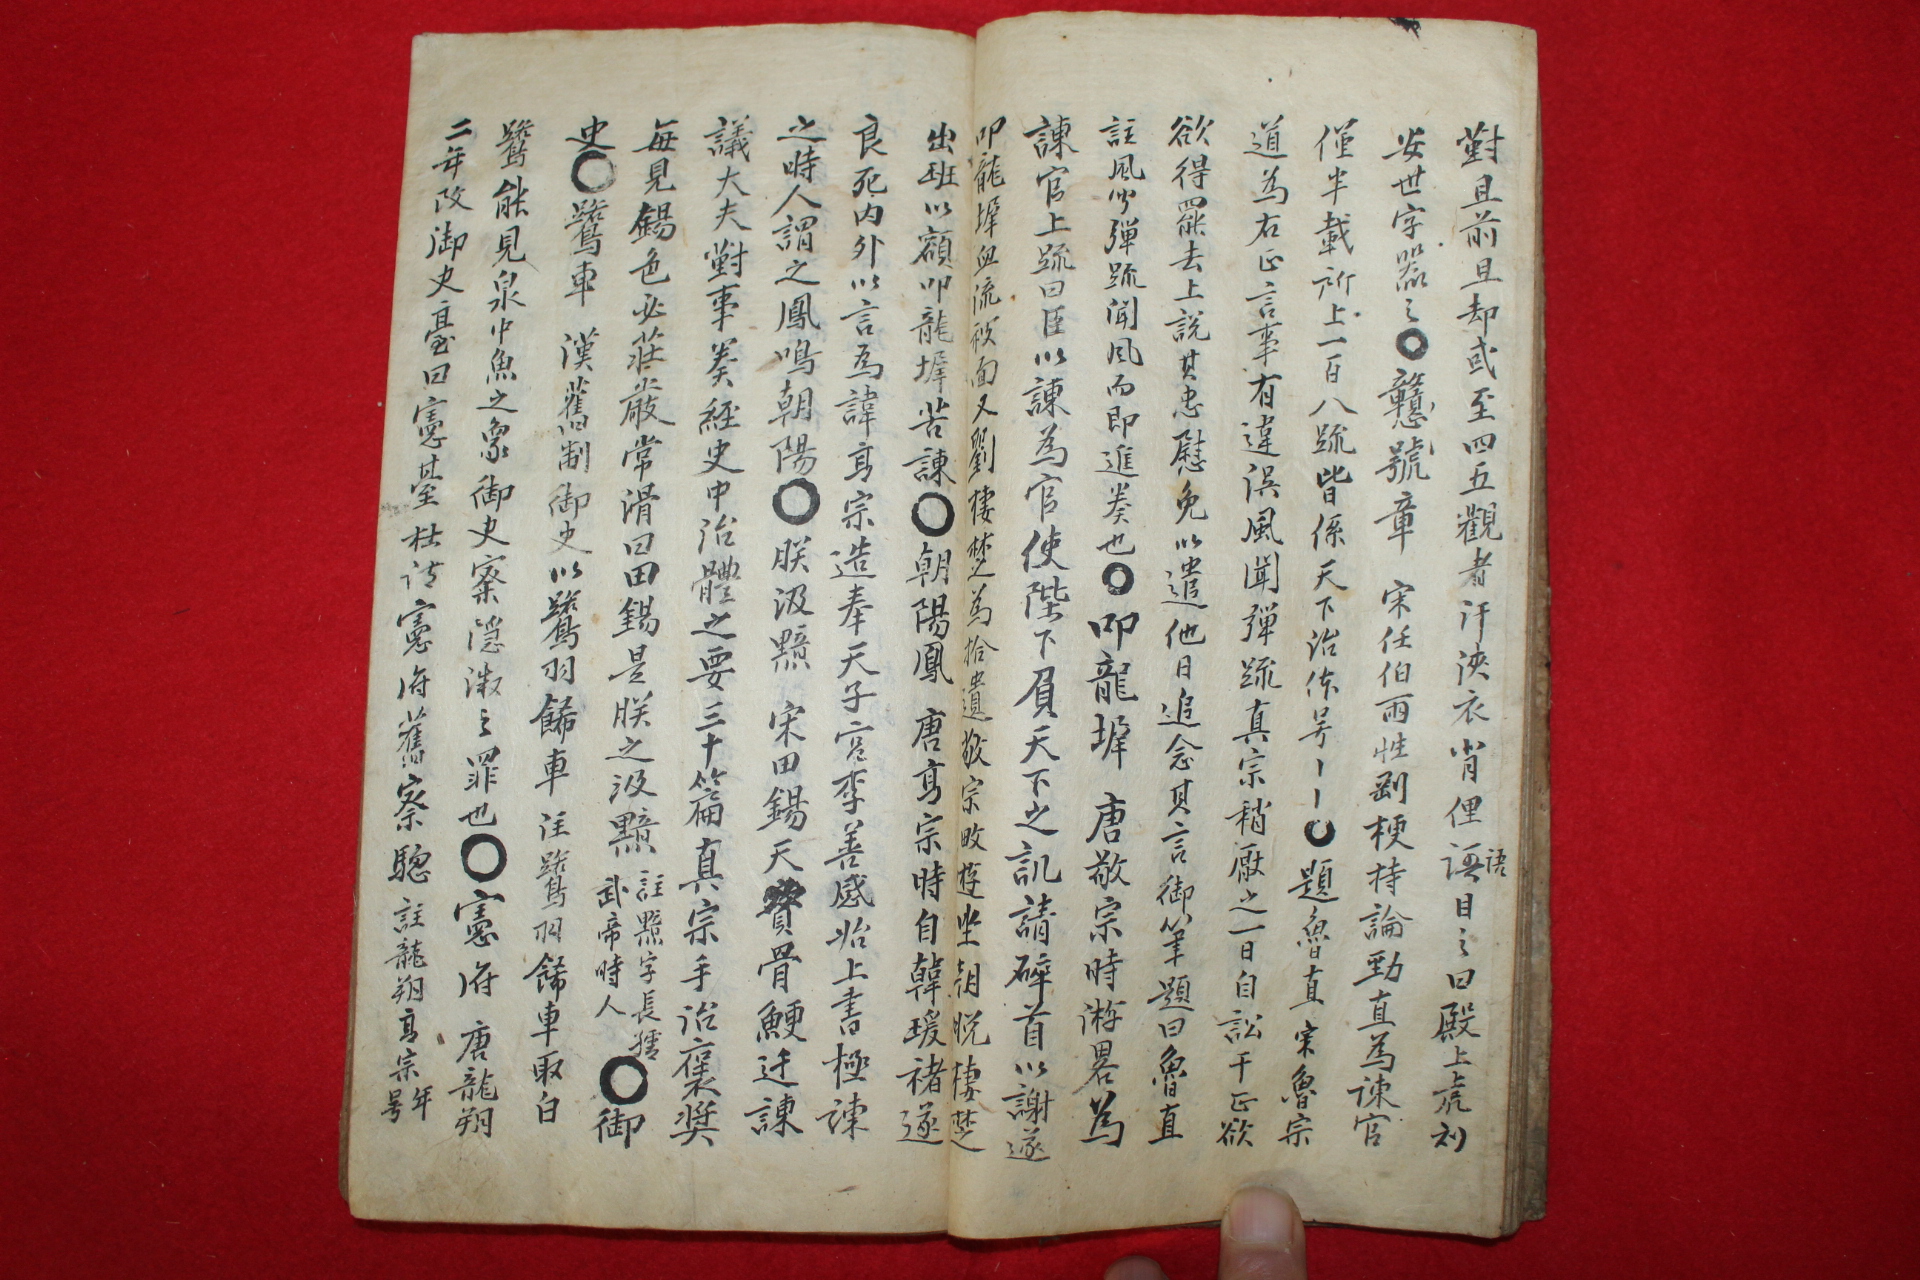 對且前且却或至四五觀者汗浹衣背俚語目之曰殿上虎刘
安世字器之〇戇號章 宋任伯雨性剛梗持論勁直為諫官
僅半載所上一百八疏皆係天下治体号〇題魯直 宋魯宗
道為右正言事有違误風聞彈疏真宗稍厭之一日自訟于正欲
欲得罷去上說其忠慰免以遣他日追念其言御筆題曰魯直
註風聞彈疏聞风而即進奏也〇叩龍墀 唐敬宗時游畧為
諫官上疏曰臣以諫為官使陛下負天下之訊請碎首以謝遂
叩龍墀血流被面又劉棲楚為拾遺敬宗畋遊坐朝晩棲楚
出班以額叩龍墀苦諫〇朝陽鳳 唐高宗時自韓瑗禇遂
良死内外以言為諱高宗造奉天子宮李善感始上書極諫
之時人謂之鳳鳴朝陽〇朕汲黯 宋田錫天賫骨鯁迁諫
議大夫對事奏經史中治體之要三十篇真宗手治褒奨
每見錫色必莊嚴常謂曰田錫是朕之汲黯 註黯字長孺武帝時人〇御
史〇鷺車 漢舊制御史以鷺羽餙車 注鷺羽餙車取白
鷺能見泉中魚之象御史察隱微之罪也〇憲府 唐龍朔
二年改御史臺曰憲䑓杜诗憲府舊察驄 註龍朔高宗年号